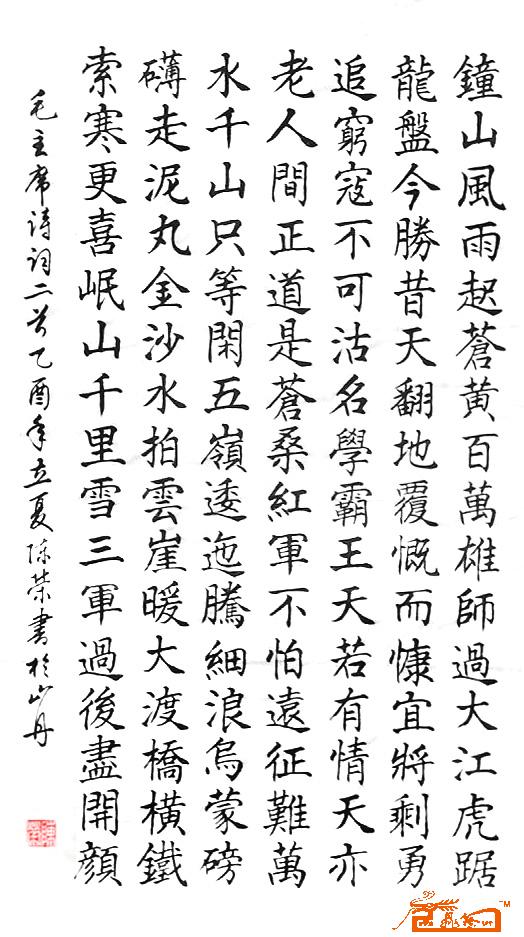 鐘山風雨起蒼黃百萬雄師過大江虎踞
龍盤今勝昔天翻地覆慨而慷宜將剩勇
追窮寇不可沽名學霸王天若有情天亦
老人間正道是蒼桑紅軍不怕遠征難萬
水千山只等閑五嶺逶迤騰細浪烏蒙磅
礴走泥丸金沙水拍雲崖暖大渡橋橫鐵
索寒更喜岷山千里雪三軍過後盡開顏
毛主席詩詞二首乙酉年立夏陈荣書於山丹